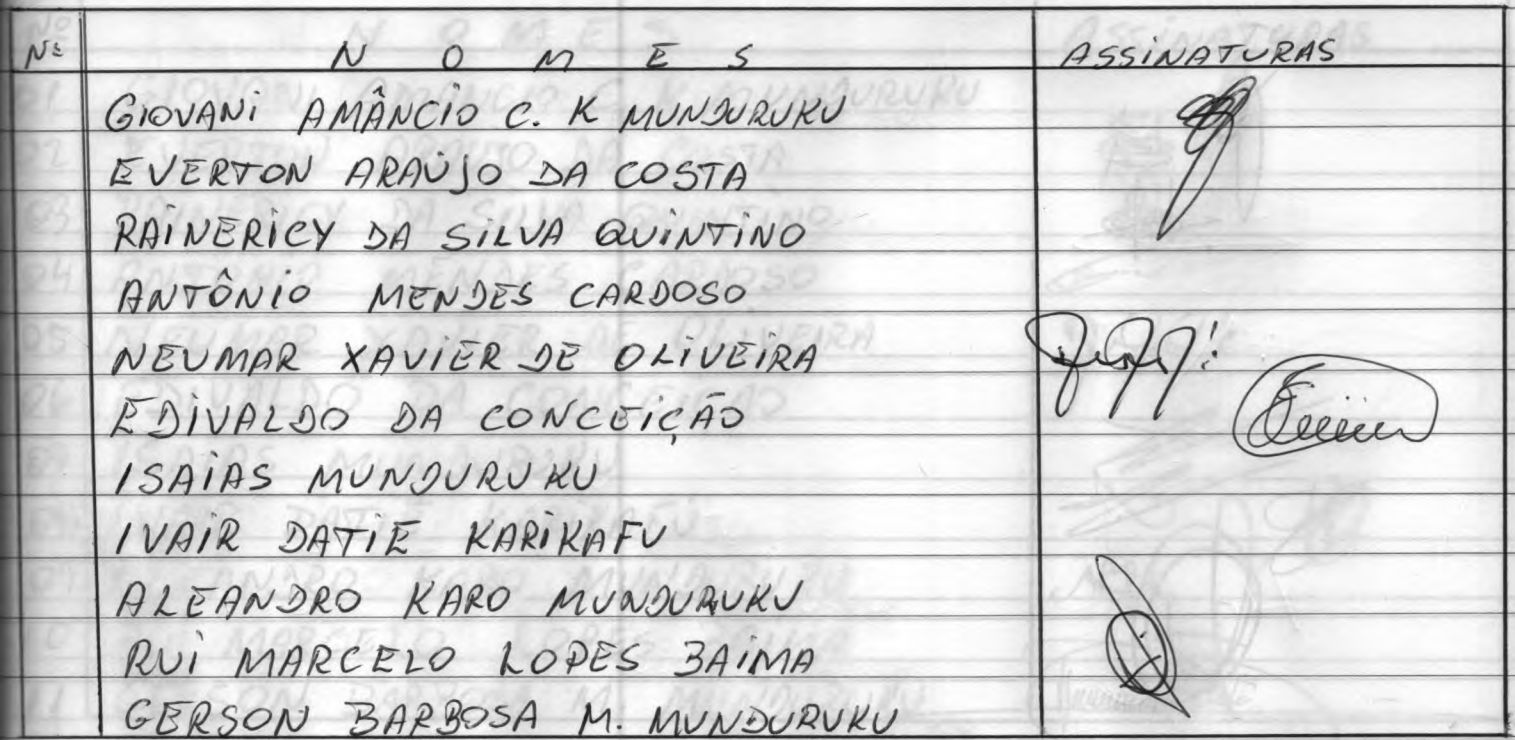 Nº N O M E S ASSINATURAS
GIOVANI AMÂNCIO C. K MUNDURUKU
EVERTON ARAÚJO DA COSTA
RAINERICY DA SILVA QUINTINO
ANTÔNIO MENDES CARDOSO
NEUMAR XAVIER DE OLIVEIRA
EDIVALDO DA CONCEIÇÃO
ISAIAS MUNDURUKU
IVAIR DATIE KARIKAFU
ALEANDRO KARO MUNDURUKU
RUI MARCELO LOPES BAIMA
GERSON BARBOSA M. MUNDURUKU